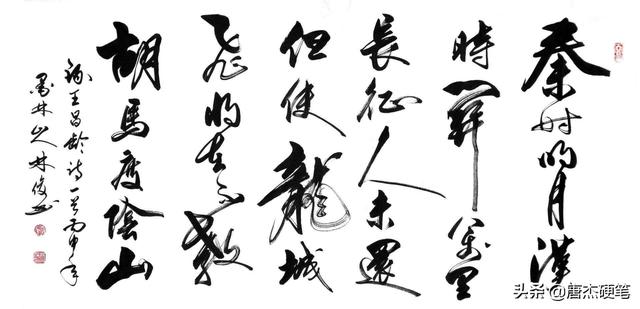 秦時明月漢
時關萬里
長征人未還
但使龍城
飛將在不教
胡馬度陰山
錄王昌齡詩一首丙申年
墨林山人林俊書
头条 @唐杰硬笔